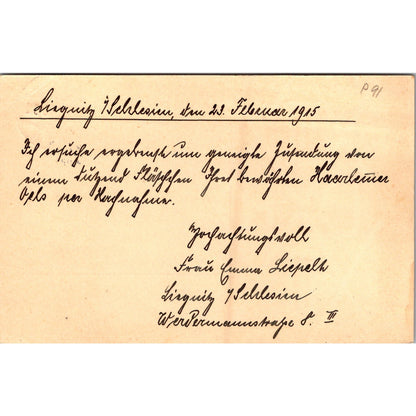 P 91
Liegnitz i/Schlesien, den 23. Februar 1915
Ich ersuche ergebenst um geneigte Zusendung von
einem Dutzend Fläschchen Ihres bewährten Haarlemer
Oels per Nachnahme.
Hochachtungsvoll
Frau Emma Liepelt
Liegnitz i/Schlesien
8. III